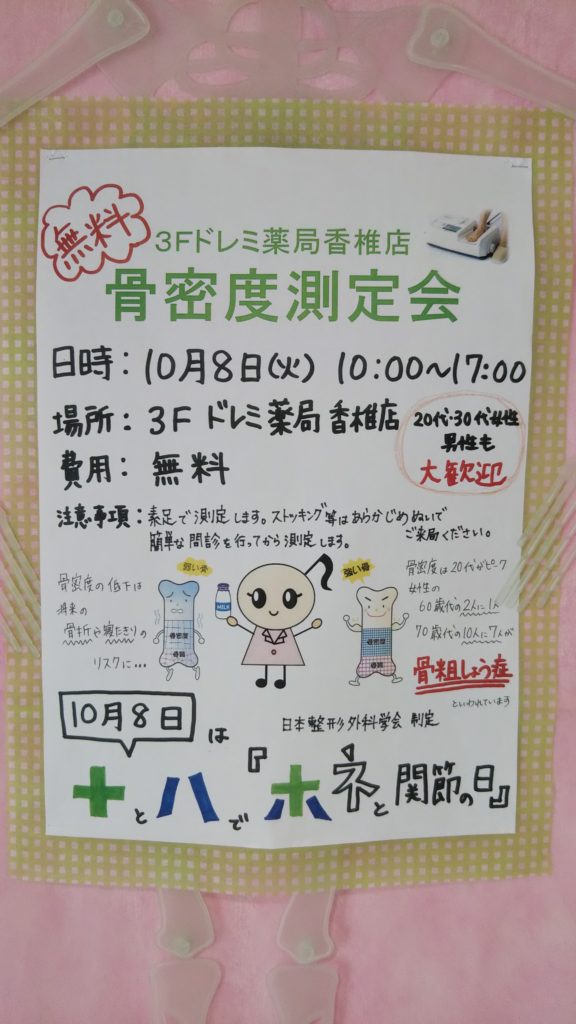 無料
3Fドレミ薬局香椎店
骨密度測定会
日時：10月8日(火) 10:00～17:00
場所：3F ドレミ薬局 香椎店
費用：無料
20代・30代女性
男性も
大歓迎
注意事項：素足で測定します。ストッキング等はあらかじめぬいで
ご来局ください。
簡単な問診を行ってから測定します。
骨密度の低下は
将来の
骨折や寝たきりの
リスクに…
弱い骨
骨密度
骨質
MILK
強い骨
骨密度
骨質
骨密度は20代がピーク
女性の
60歳代の2人に1人
70歳代の10人に7人が
骨粗しょう症
といわれています
10月8日は
日本整形外科学会 制定
十と八で『ホネと関節の日』